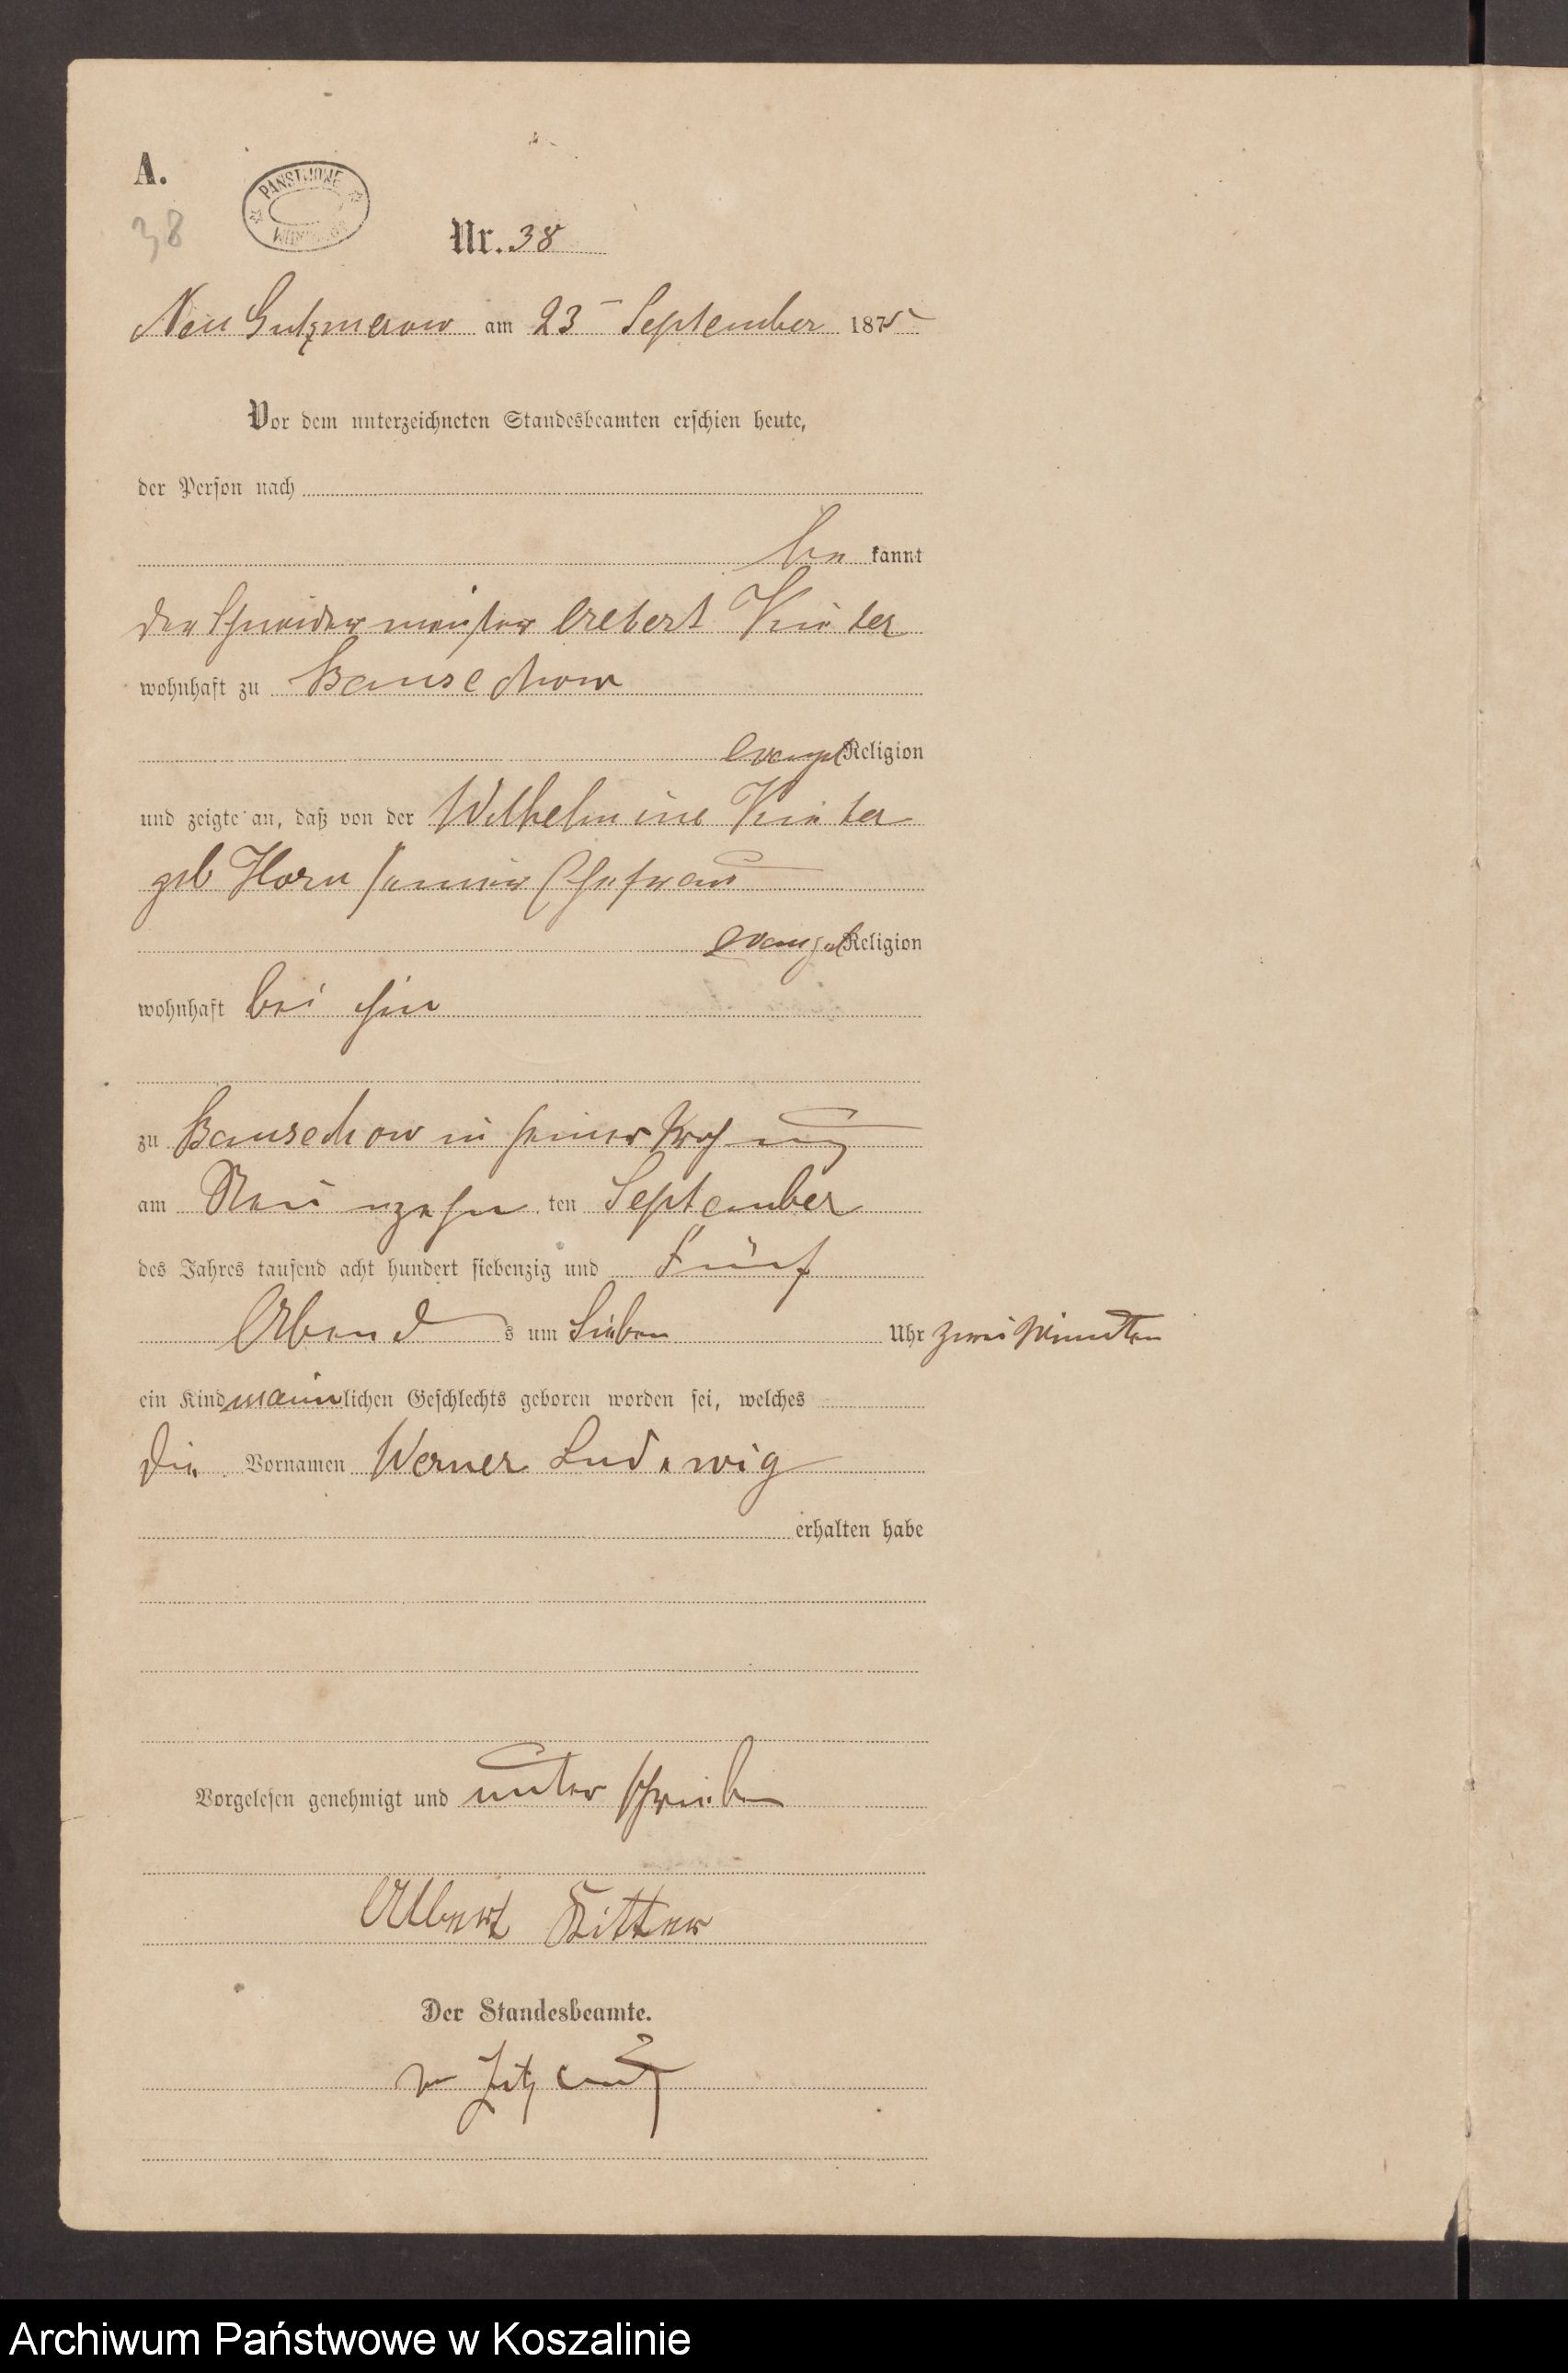 A.
PANSTWOWE
38
Nr. 38
Neu Gutzmerow am 23 September 1875
Vor dem unterzeichneten Standesbeamten erschien heute,
der Person nach
be kannt
der Schneidermeister Albert
wohnhaft zu Banschow
evangel Religion
und zeigte an, daß von der Wilhelmine
geb Horn seiner Ehefrau
evangel Religion
wohnhaft bei ihm
zu Banschow in seiner Wohnung
am Neunzehn ten September
des Jahres tausend acht hundert siebenzig und Fünf
Abend s um Sieben Uhr zwei Minuten
ein Kind männlichen Geschlechts geboren worden sei, welches
die Vornamen Werner Ludwig
erhalten habe
Vorgelesen genehmigt und unterschrieben
Albert Ritter
Der Standesbeamte.
Archiwum Państwowe w Koszalinie